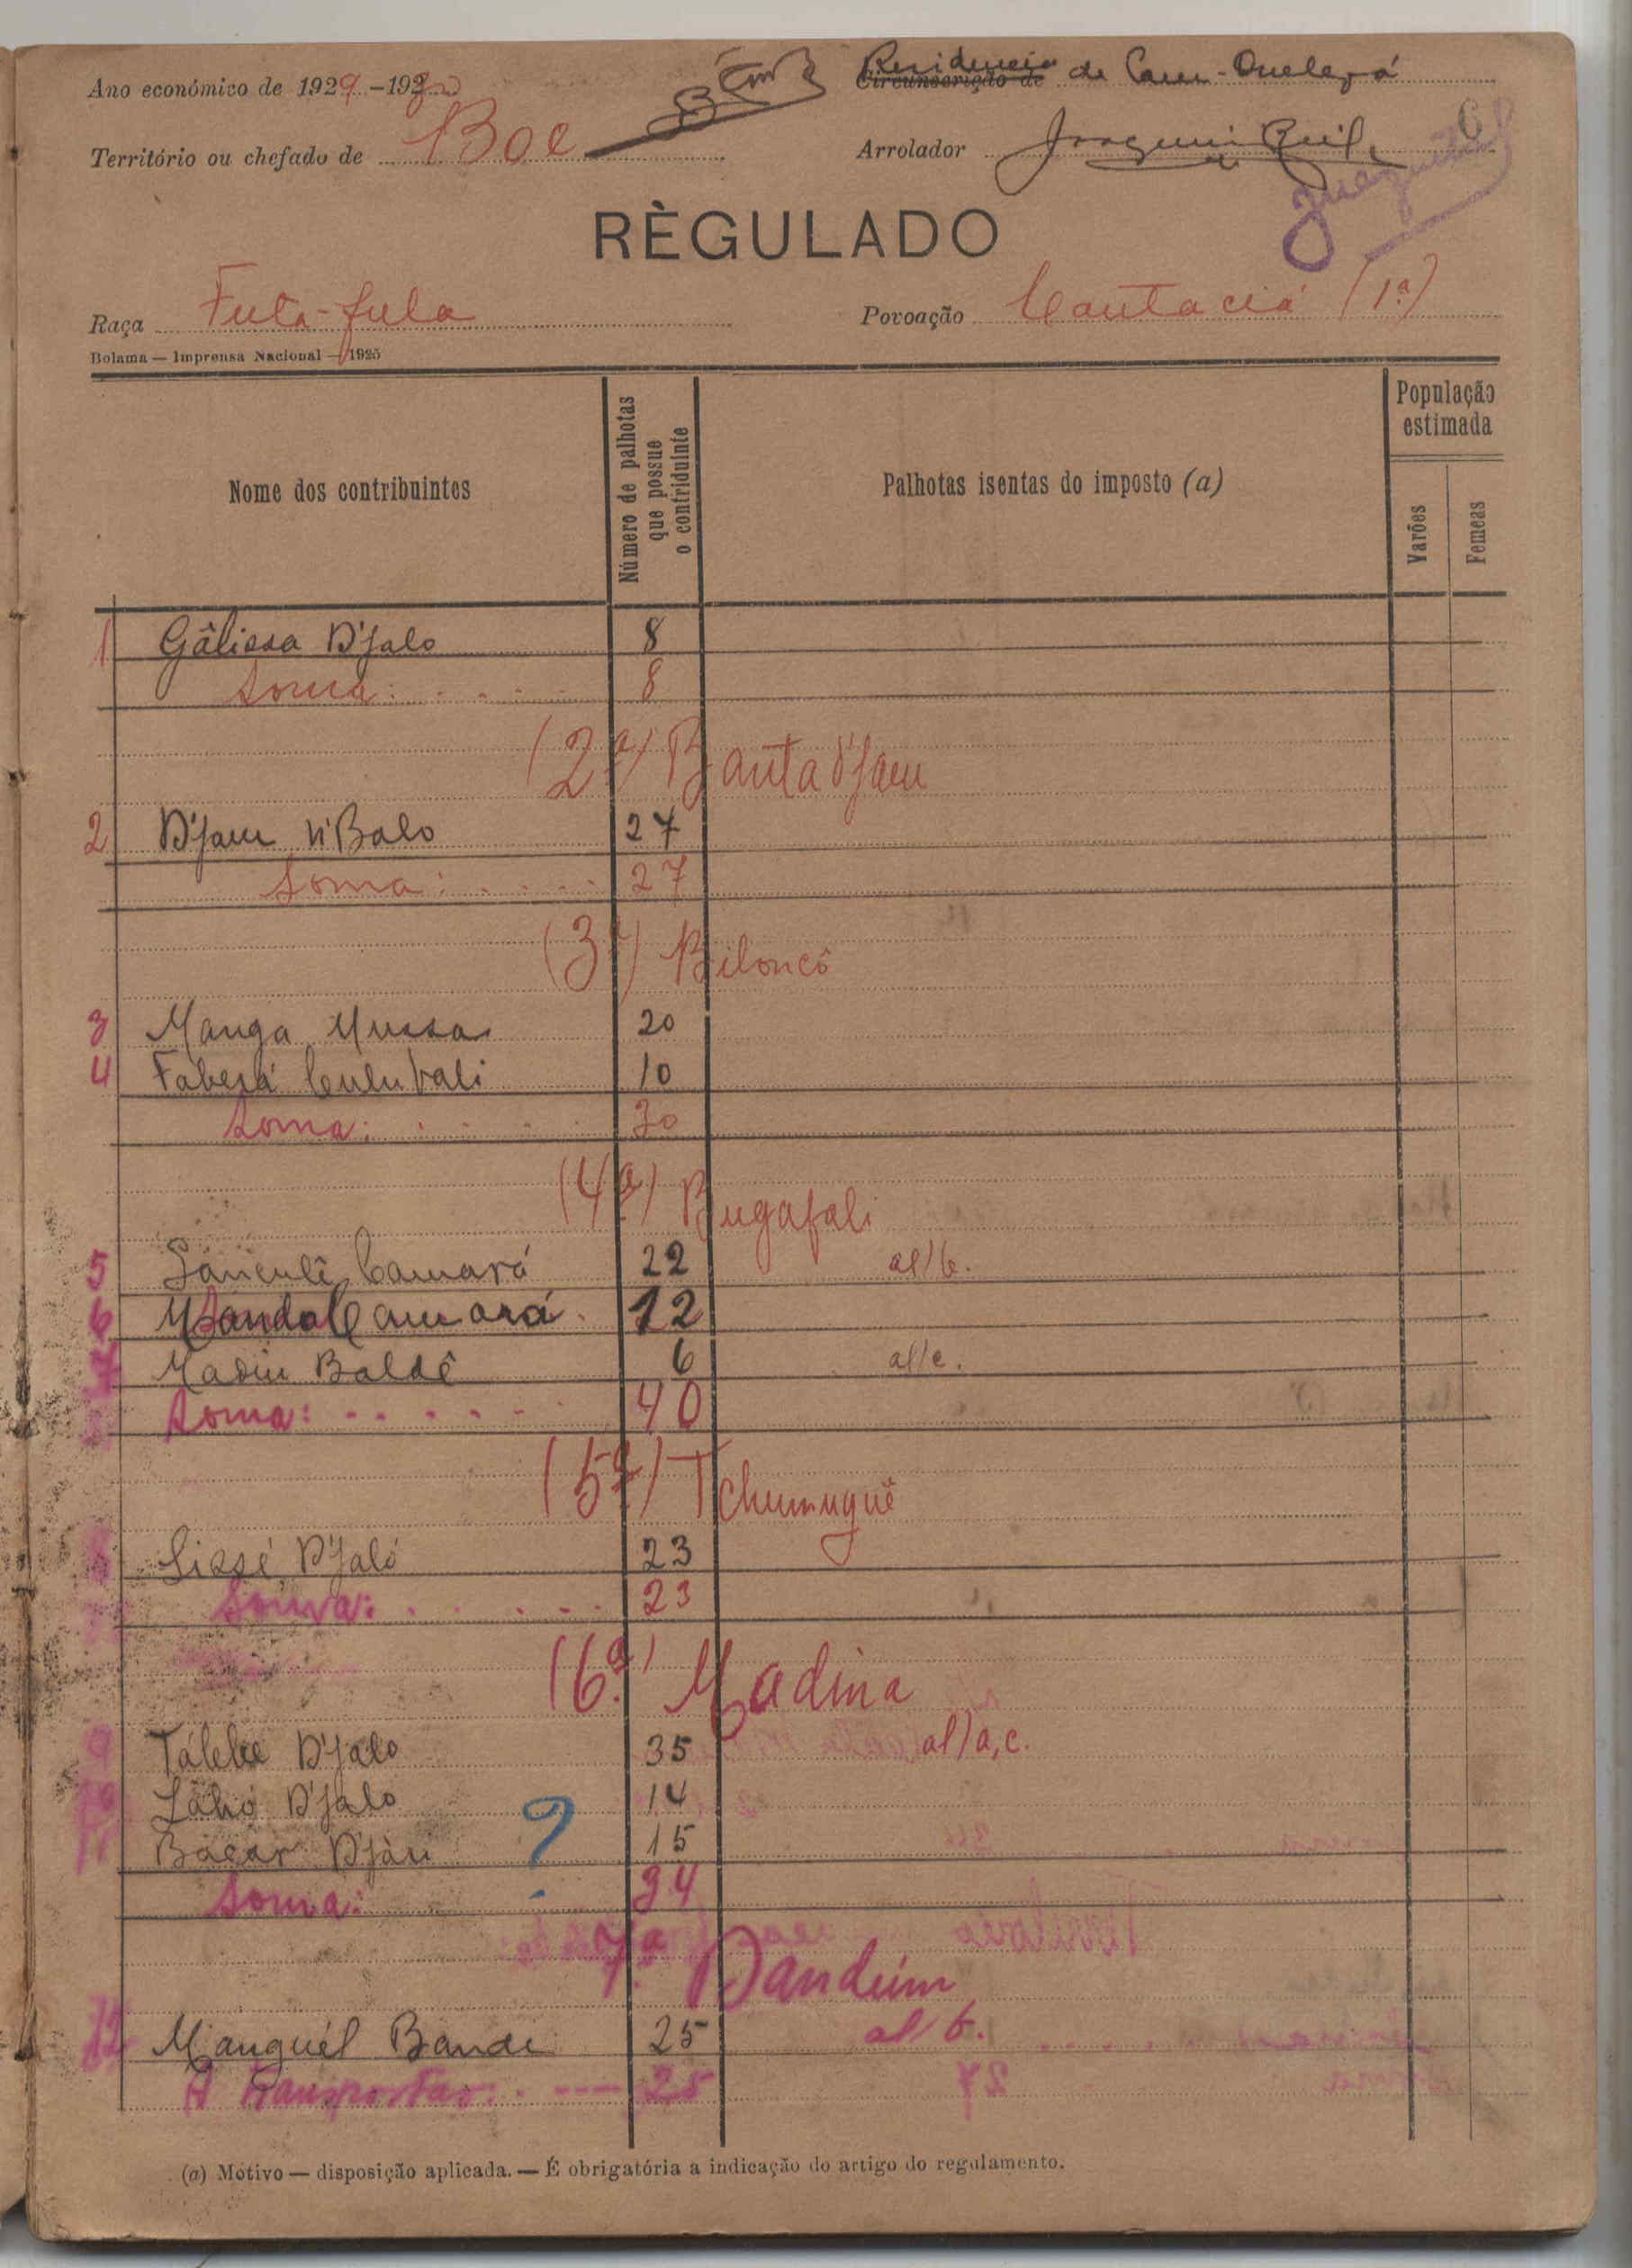 Ano económico de 1929-1930
Residencia de Cam-Quelefá
Circunscrição de
Território ou chefado de Boé
Arrolador Joaquim
6
RÈGULADO
Raça Futa-fula
Povoação Cantaciá (1ª)
Bolama — Imprensa Nacional — 1925
Nome dos contribuintes
Número de palhotas que possue o contriduinte
Palhotas isentas do imposto (a)
População estimada
Varões
Femeas
1 Gâlissa D'jalo 8
Soma: 8
(2ª) Banta D'jam
2 D'jam N'Balo 27
Soma: 27
(3ª) Biloncô
3 Manga Mussa 20
4 Faberá Culubali 10
Soma: 30
(4ª) Bugafali
5 Sanculê Camará 22 al/b.
6 Mandal Camará 12
7 Madiu Baldê 6 al/c.
Soma: 40
(5ª) Tchumuguê
8 Lissé D'jaló 23
Soma: 23
(6ª) Madina
9 Talebe D'jalo 35 al) a, c.
10 Lahó D'jalo 14
11 Bacar D'jau ? 15
Soma: 34
7ª Dandúm
12 Manguél Bande 25 al/b.
A transportar: 25
(a) Motivo — disposição aplicada. — É obrigatória a indicação do artigo do regulamento.